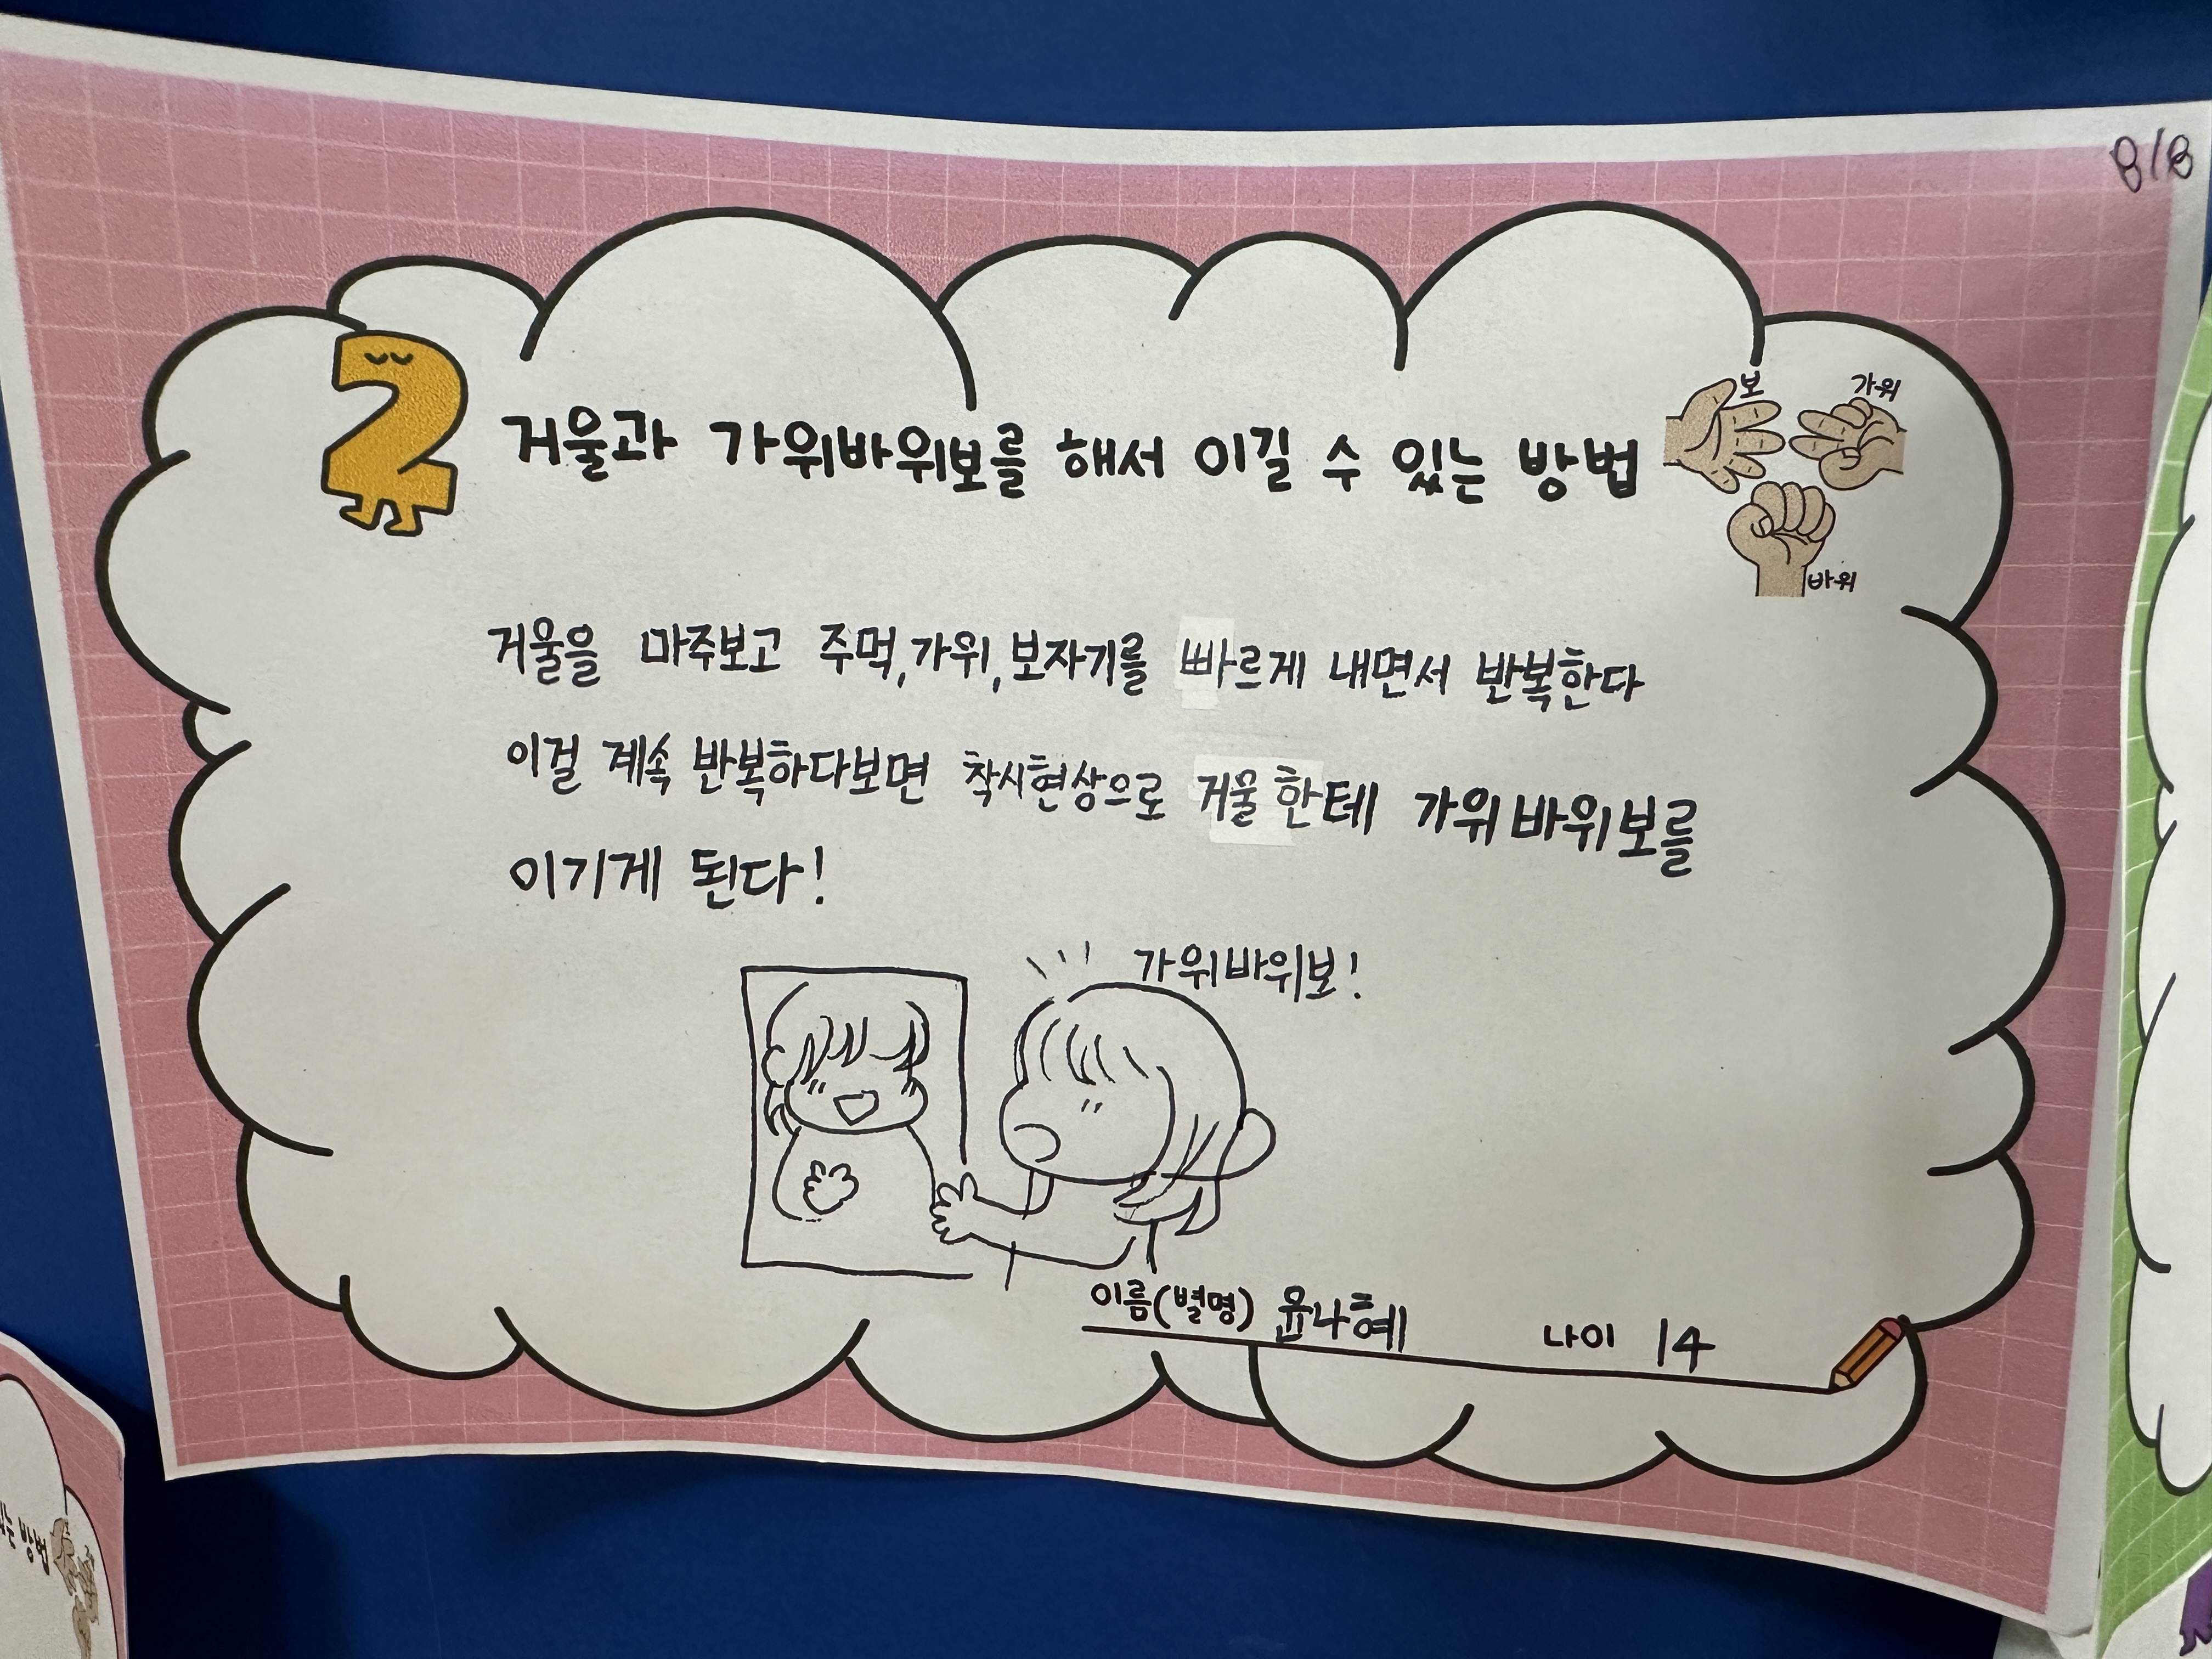 8/8
2 거울과 가위바위보를 해서 이길 수 있는 방법
보
가위
바위
거울을 마주보고 주먹, 가위, 보자기를 빠르게 내면서 반복한다
이걸 계속 반복하다보면 착시현상으로 거울한테 가위바위보를
이기게 된다!
가위바위보!
이름(별명) 윤나혜 나이 14
는 방법